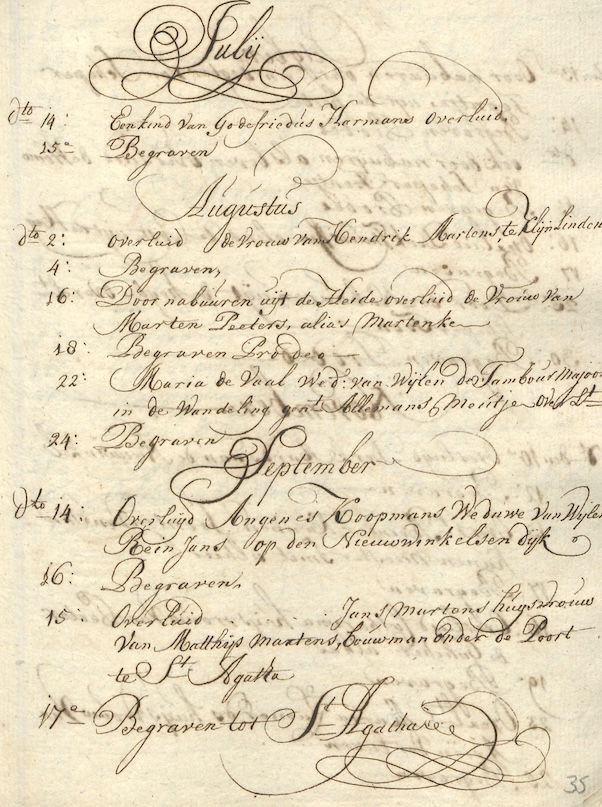 Julij
dto 14: Een kind van Godefriedus Harmans Overluid.
15e Begraven
Augustus
dto 2: overluid de vrouw van Hendrik Martens, te Klijn Linden
4: Begraven,
16: Door nabuuren uijt de Heide overluid de vrouw van
Marten Peeters, alias Martenke
18: Begraven Pro deo
22: Maria de Vaal Wed: van Wijlen De Tambour Majoor
in de Wandeling gent Allemans Meitje over Lt
24: Begraven
September
dto 14: Overluijd Angenes Koopmans Weduwe van Wijlen
Rein Jans op den Nieuwwinkelsen dijk
16: Begraven,
15: Overluid Jans Martens huijsvrouw
van Matthijs Martens, bouwman onder de Poort
te St Agatha
17e Begraven tot St Agatha
35